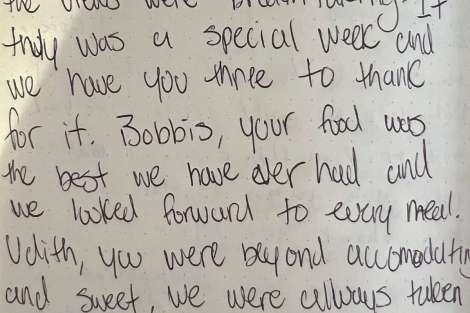 the views were breathtaking. It
truly was a special week and
we have you three to thank
for it. Bobbis, your food was
the best we have ever had and
we looked forward to every meal.
Udith, you were beyond accomodating
and sweet, we were allways taken